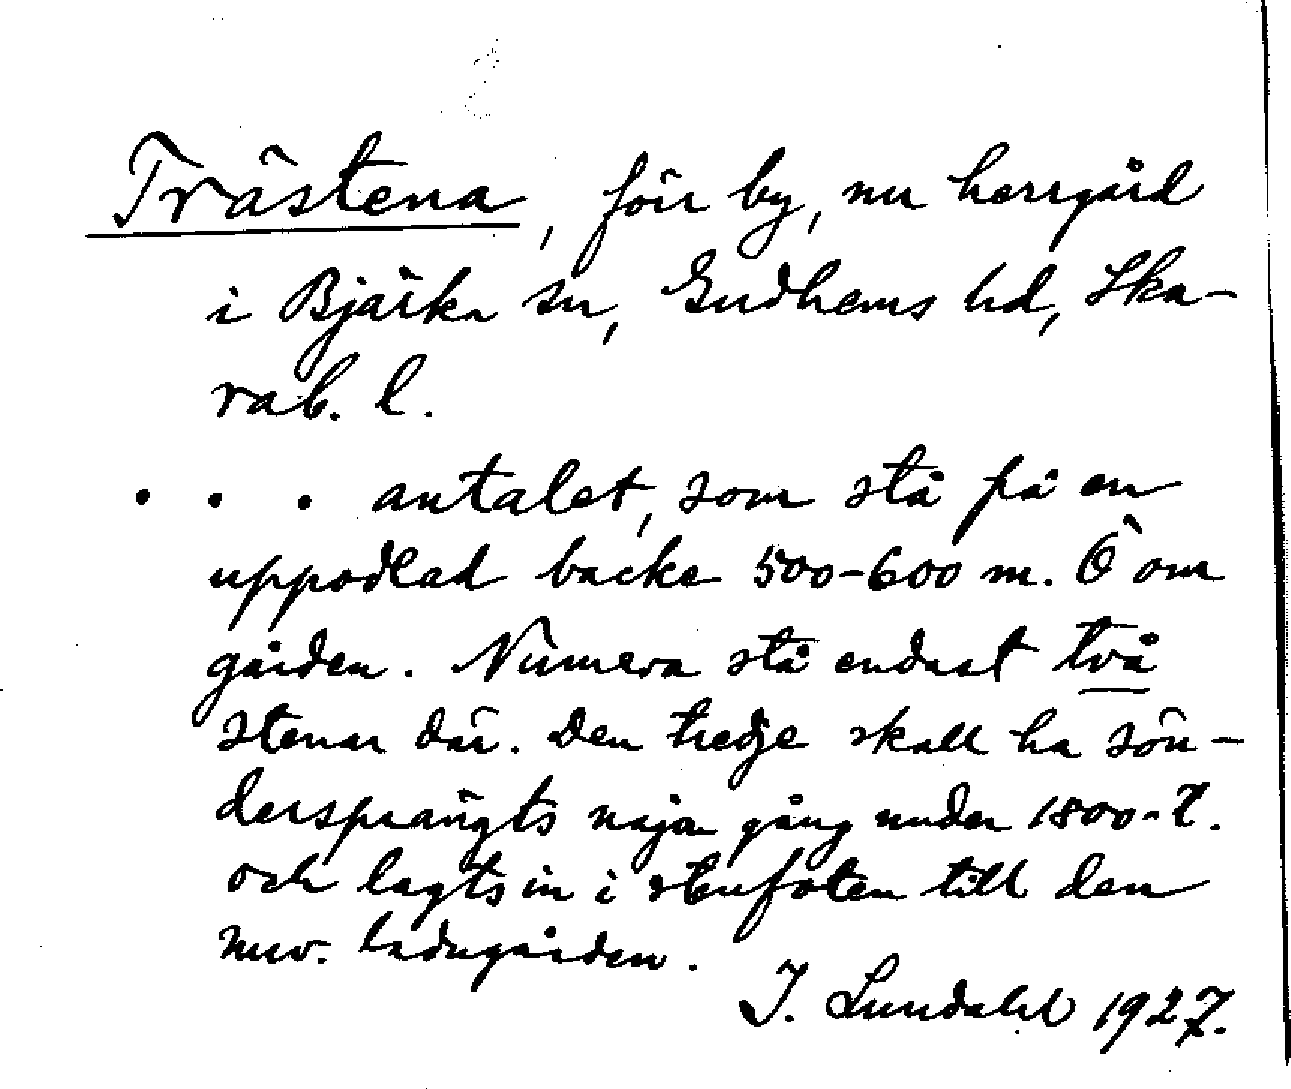 Trästena, förr by, nu herrgård
i Bjärka sn, Gudhems hd, Ska-
rab. l.
. . . antalet, som stå på en
uppodlad backe 500-600 m. Ö om
gården. Numera stå endast två
stenar där. Den tredje skall ha sön-
dersprängts någon gång under 1800-t.
och lagts in i stenfoten till den
nuv. ladugården.
I. Lundahl 1927.